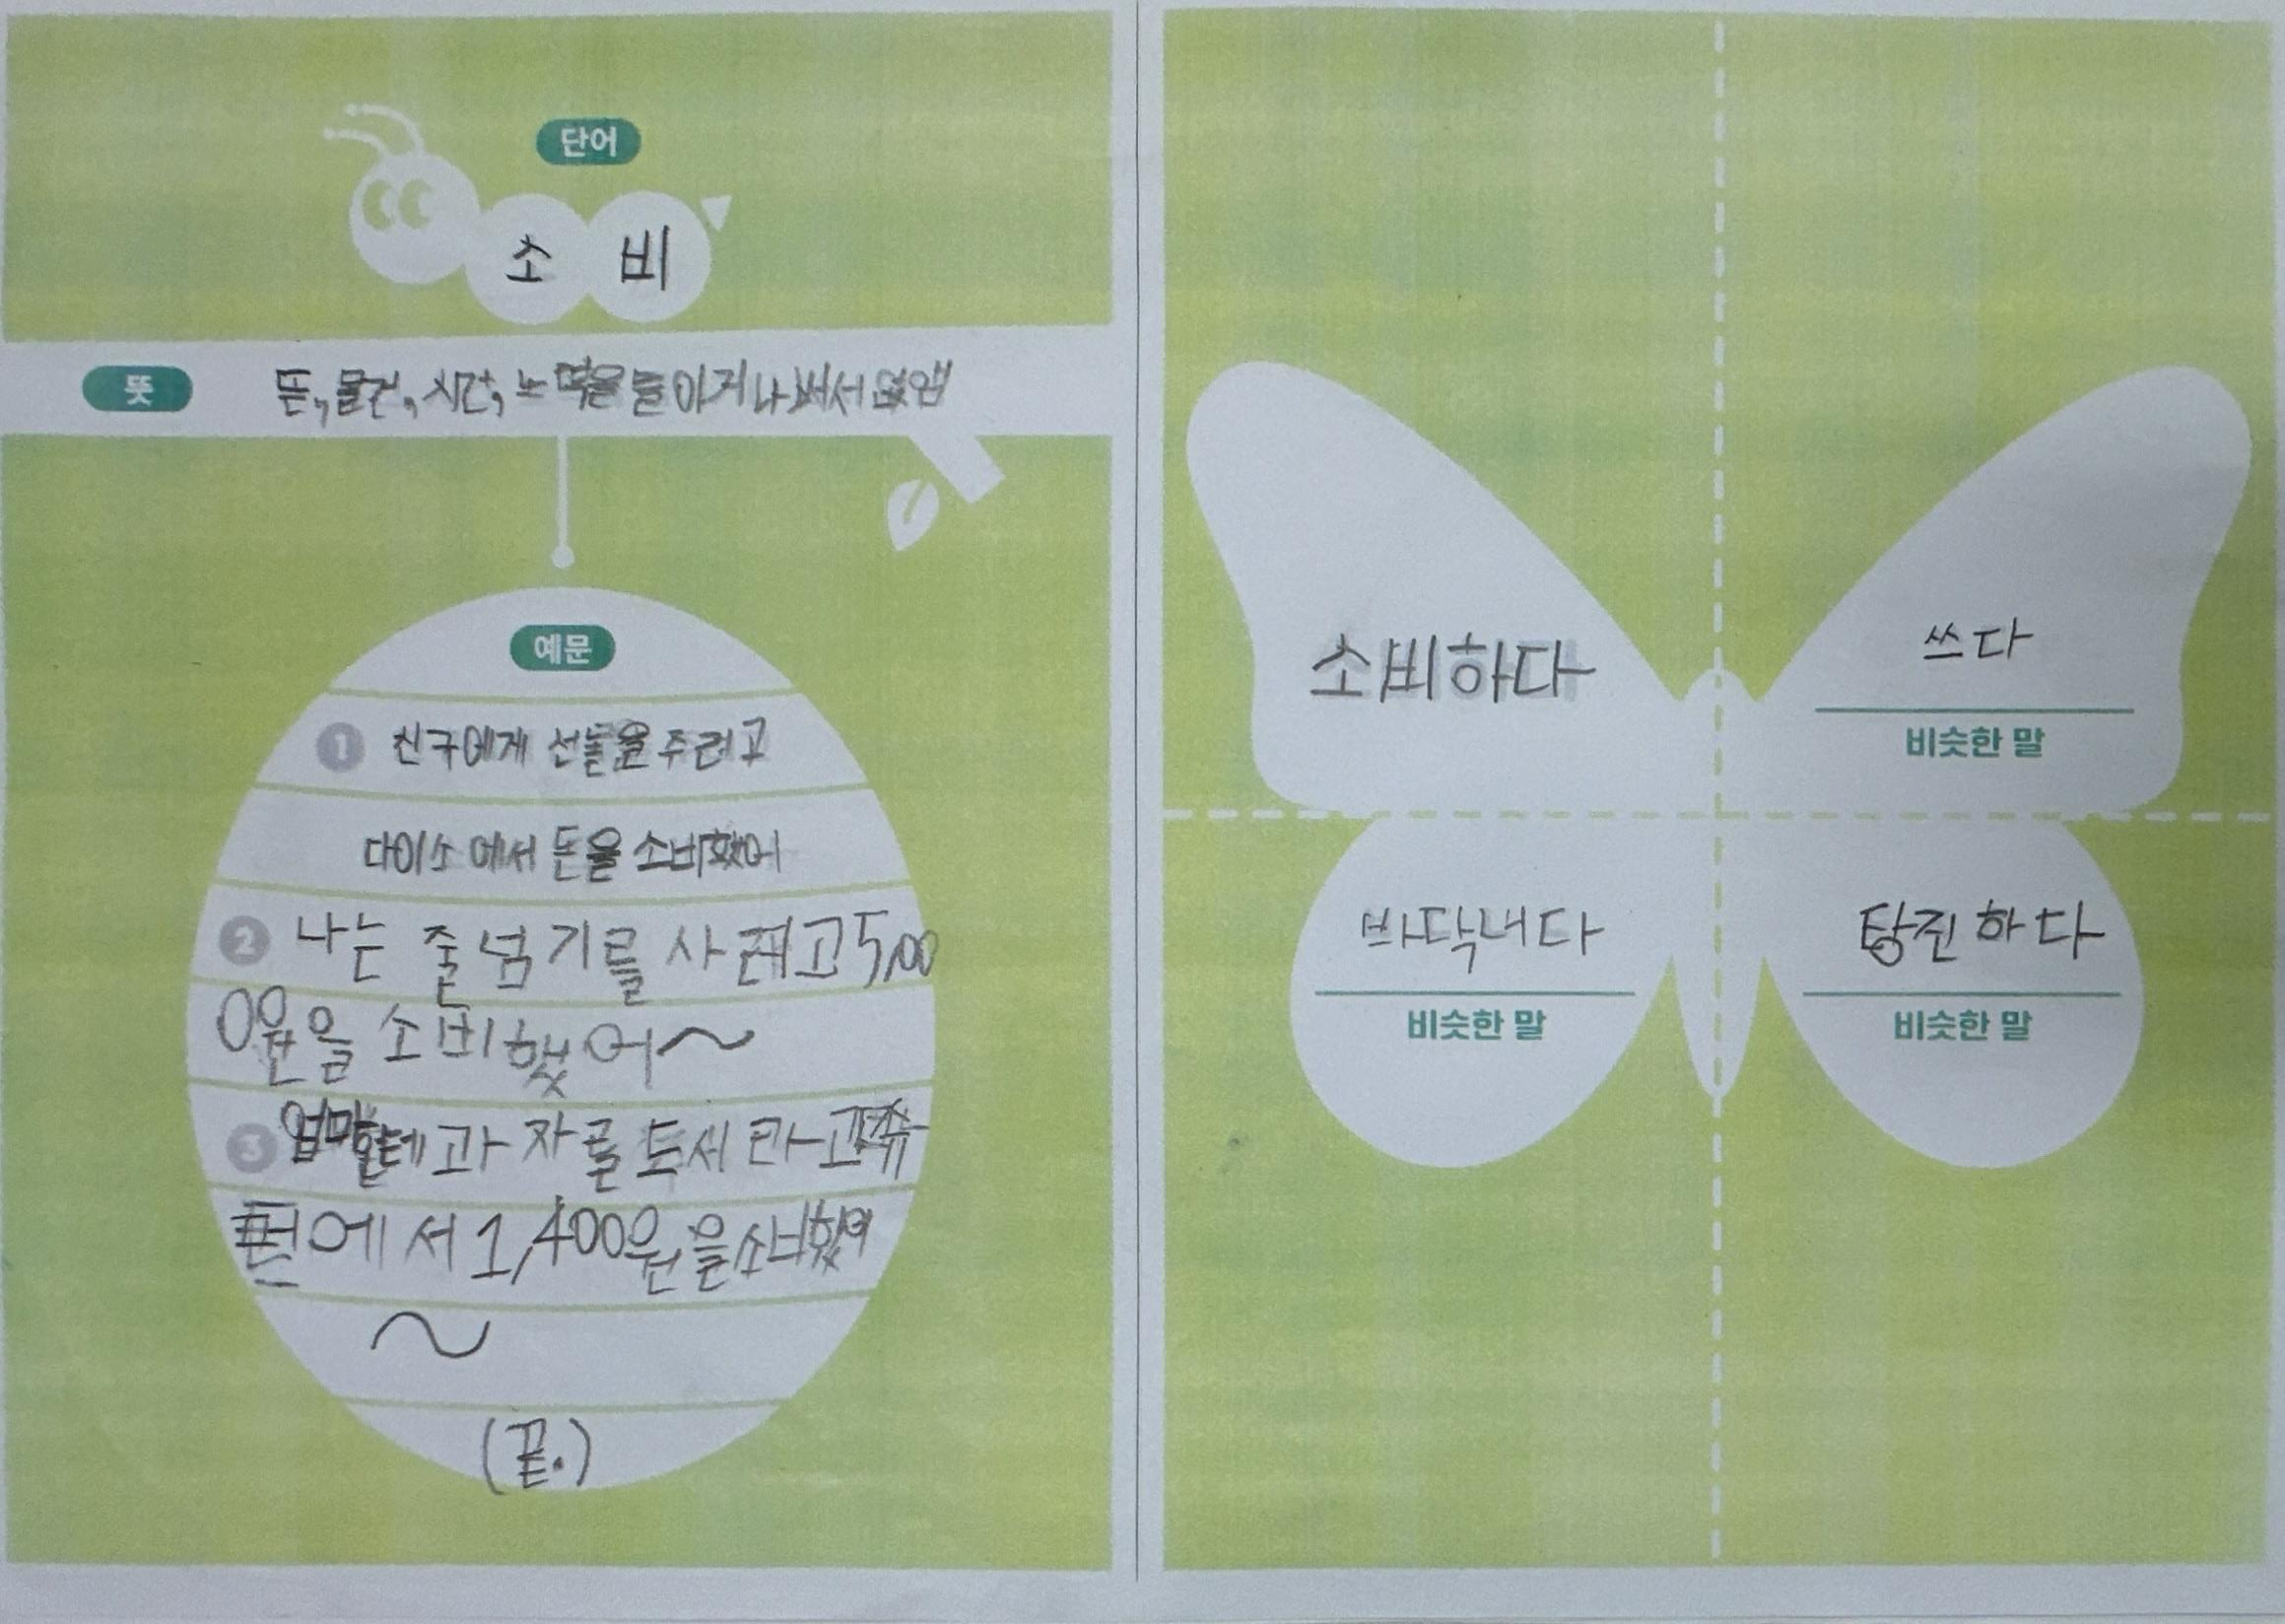 단어
소 비
뜻 돈, 물건, 시간, 노력을 들이거나 써서 없앰
예문
1 친구에게 선물을 주려고
다이소에서 돈을 소비했어
2 나는 줄넘기를 사려고 5,00
0원을 소비했어~
3 엄마한테 과자를 드세라고
에서 1,400원을 소비했어
~
(끝.)
소비하다
쓰다
비슷한 말
바닥내다
비슷한 말
탕진하다
비슷한 말